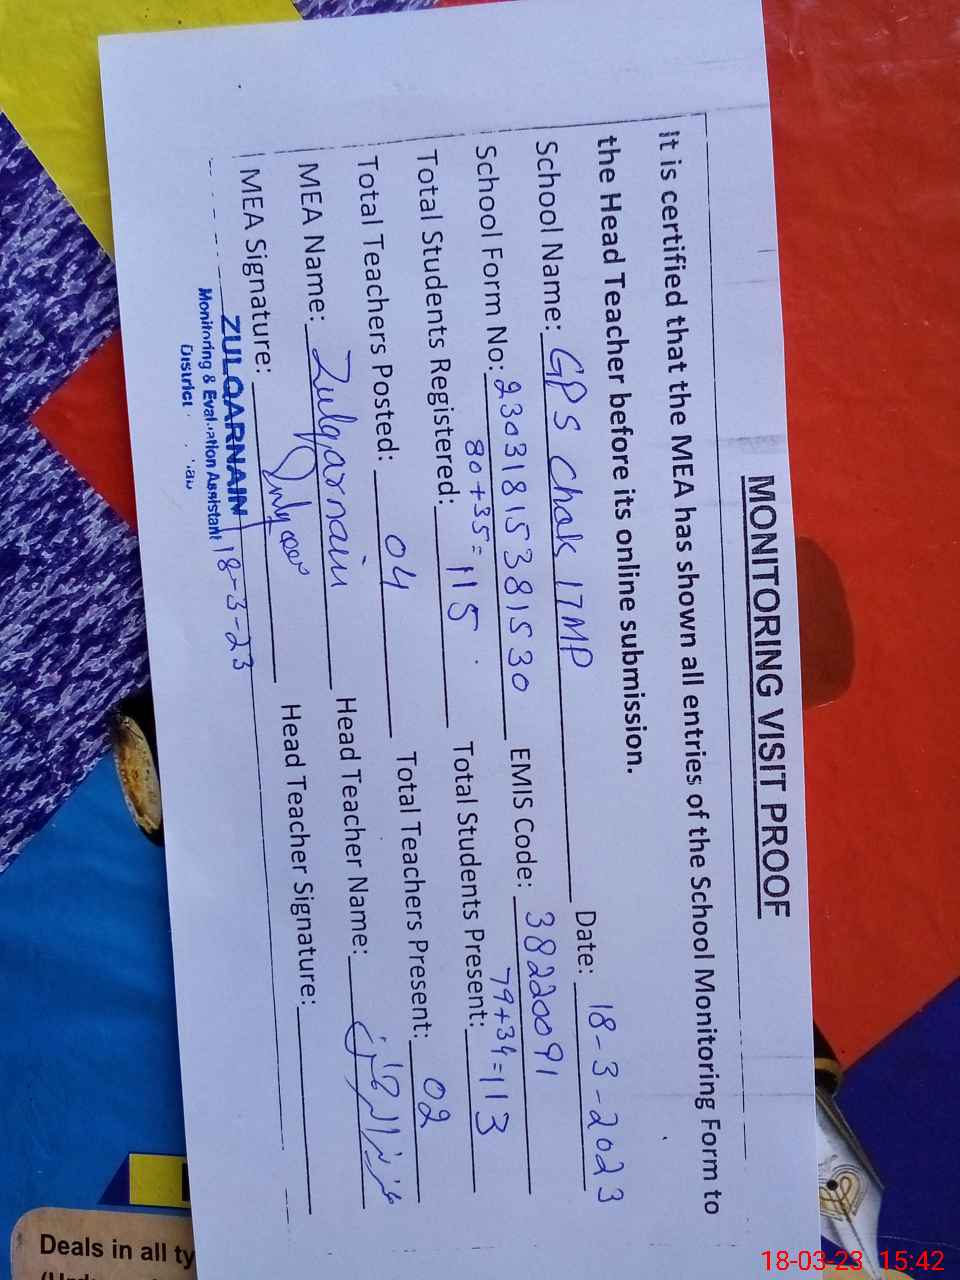 MONITORING VISIT PROOF
It is certified that the MEA has shown all entries of the School Monitoring Form to
the Head Teacher before its online submission.
School Name: GPS Chak 17MP Date: 18-3-2023
School Form No: 230318153381530 EMIS Code: 38220091
Total Students Registered: 80+35=115 Total Students Present: 79+34=113
Total Teachers Posted: 04 Total Teachers Present: 02
MEA Name: Zulqarnain Head Teacher Name:
MEA Signature: Head Teacher Signature:
ZULQARNAIN 18-3-23
Monitoring & Evaluation Assistant
District
Deals in all ty
18-03-23 15:42